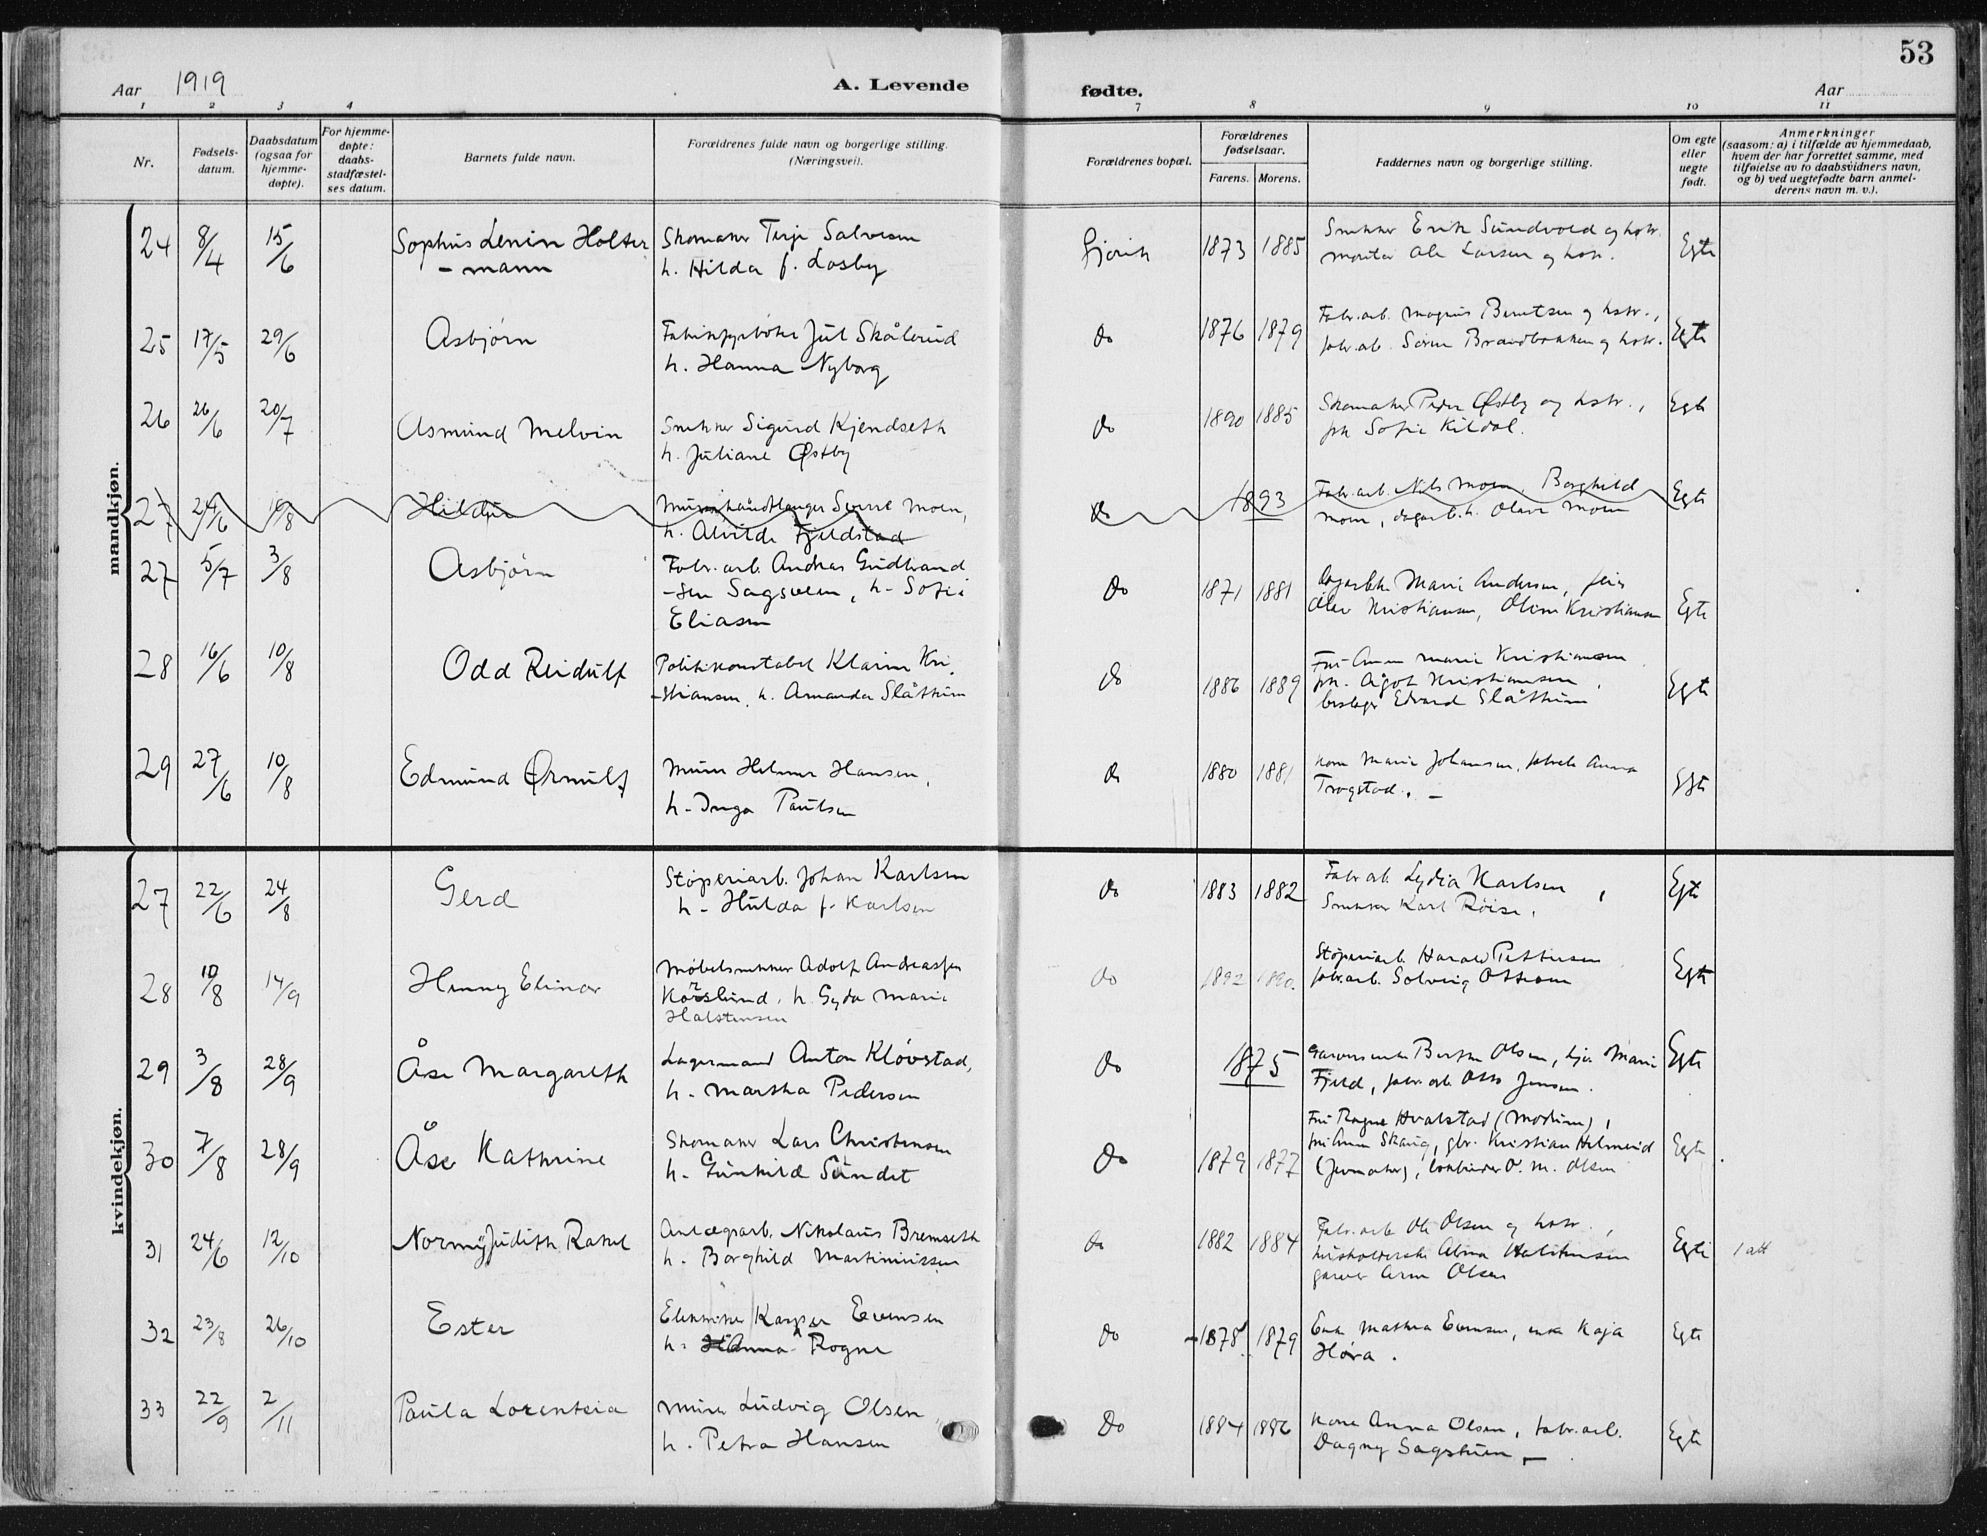 53
Aar 1919
A. Levende fødte.
Aar
1 2 3 4 7 8 9 10 11
Nr.
Fødsels-
datum.
Daabsdatum
(ogsaa for
hjemme-
døpte).
For hjemme-
døpte:
daabs-
stadfæstel-
ses datum.
Barnets fulde navn.
Forældrenes fulde navn og borgerlige stilling.
(Næringsvei).
Forældrenes bopæl.
Forældrenes
fødselsaar.
Farens. Morens.
Faddernes navn og borgerlige stilling.
Om egte
eller
uegte
født.
Anmerkninger
(saasom: a) i tilfælde av hjemmedaab,
hvem der har forrettet samme, med
tilføielse av to daabsvidners navn,
og b) ved uegtefødte barn anmel-
derens navn m. v.).
mandkjøn.
24 8/4 15/6 Sophus Lenin Holter
- mann
Skomaker Terje Salvesen
h. Hilda f. Losby
Gjøvik 1873 1885
Snekker Erik Sundvold og hstr.
montør Ole Larsen og hstr.
Egte
25 17/5 29/6 Asbjørn
Fabrikfyrbøter Jul Skålerud
h. Hanna Nyborg
do 1876 1879
Fabr.arb. Magnus Berntsen og hstr.,
fabr.arb. Søren Brandbakken og hstr.
Egte
26 26/6 20/7 Asmund Melvin
Snekker Sigurd Kjendseth
h. Juliane Østby
do 1890 1885
Skomaker Peder Østby og hstr.,
frk Sofie Kildal.
Egte
27 24/6 10/8 Hildur
Murerhåndlanger Sverre Moen,
h. Alvilde Fjeldstad
do 1893
Fabr.arb. Nils Moen, Borghild
Moen, dagarb.h. Olava Moen
Egte
27 5/7 3/8 Asbjørn
Fabr. arb. Andreas Gudbrand
-sen Sagvolden, h- Sofie
Eliasen
do 1871 1881
Marie Andersen,
Olav Kristiansen, Oline Kristiansen
Egte
28 16/6 10/8 Odd Reidulf
Politikonstabel Klarin Kri
-stiansen, h. Amanda Slåtthum
do 1886 1889
Fru Anna Marie Kristiansen,
frk. Ågot Kristiansen,
Edvard Slåtthum
Egte
29 27/6 10/8 Edmund Ørnulf
Murer Helmer Hansen,
h- Inga Paulsen
do 1880 1881
Kone Marie Johansen, Anna
Trogstad. -
Egte
kvindekjøn.
27 22/6 24/8 Gerd
Støperiarb. Johan Karlsen
h- Hulda f. Karlsen
do 1883 1882
Fabr arb. Lydia Karlsen,
Snekker Karl Røise.
Egte
28 10/8 14/9 Henny Elinor
Møbelsnekker Adolf Andreassen
Korslund, h. Gyda Marie
Halstensen
do 1892 1890.
Støperiarb. Harald Pettersen
fabr.arb. Solveig Ottesen
Egte
29 3/8 28/9 Åse Margareth
Lagermand Anton Kløvstad,
h- Martha Pedersen
do 1875
Garversvend Olsen, Marie
Fjeld, fabr.arb. Otto Jensen.
Egte
30 7/8 28/9 Åse Kathrine
Skomaker Lars Christensen
h- Gunhild Sundet
do 1879 1877
Fru Ragna Hvalstad (Modum),
fru Anna Skaug, gbr. Kristian Helmeid
(Jevnaker), bokbinder O. M. Olsen
Egte
31 24/6 12/10 Normy Judith Rakel
Anlægsarb. Nikolaus Bremseth
h. Borghild Martiniussen
do 1882 1884
Fabr.arb. Ole Olsen og hstr.,
husholderske Alma Halstensen
garver Arne Olsen
Egte 1 att
32 23/8 26/10 Ester
Elektriker Kasper Evensen
h. Anna Rogne
do 1878 1879
Enke Mathea Evensen, enke Kaja
Høva.
Egte
33 22/9 2/11 Paula Lorentzia
Murer Ludvig Olsen,
h. Petra Hansen
Do 1884 1886
Kone Anna Olsen, fabr.arb.
Dagny Sagstuen -
Egte